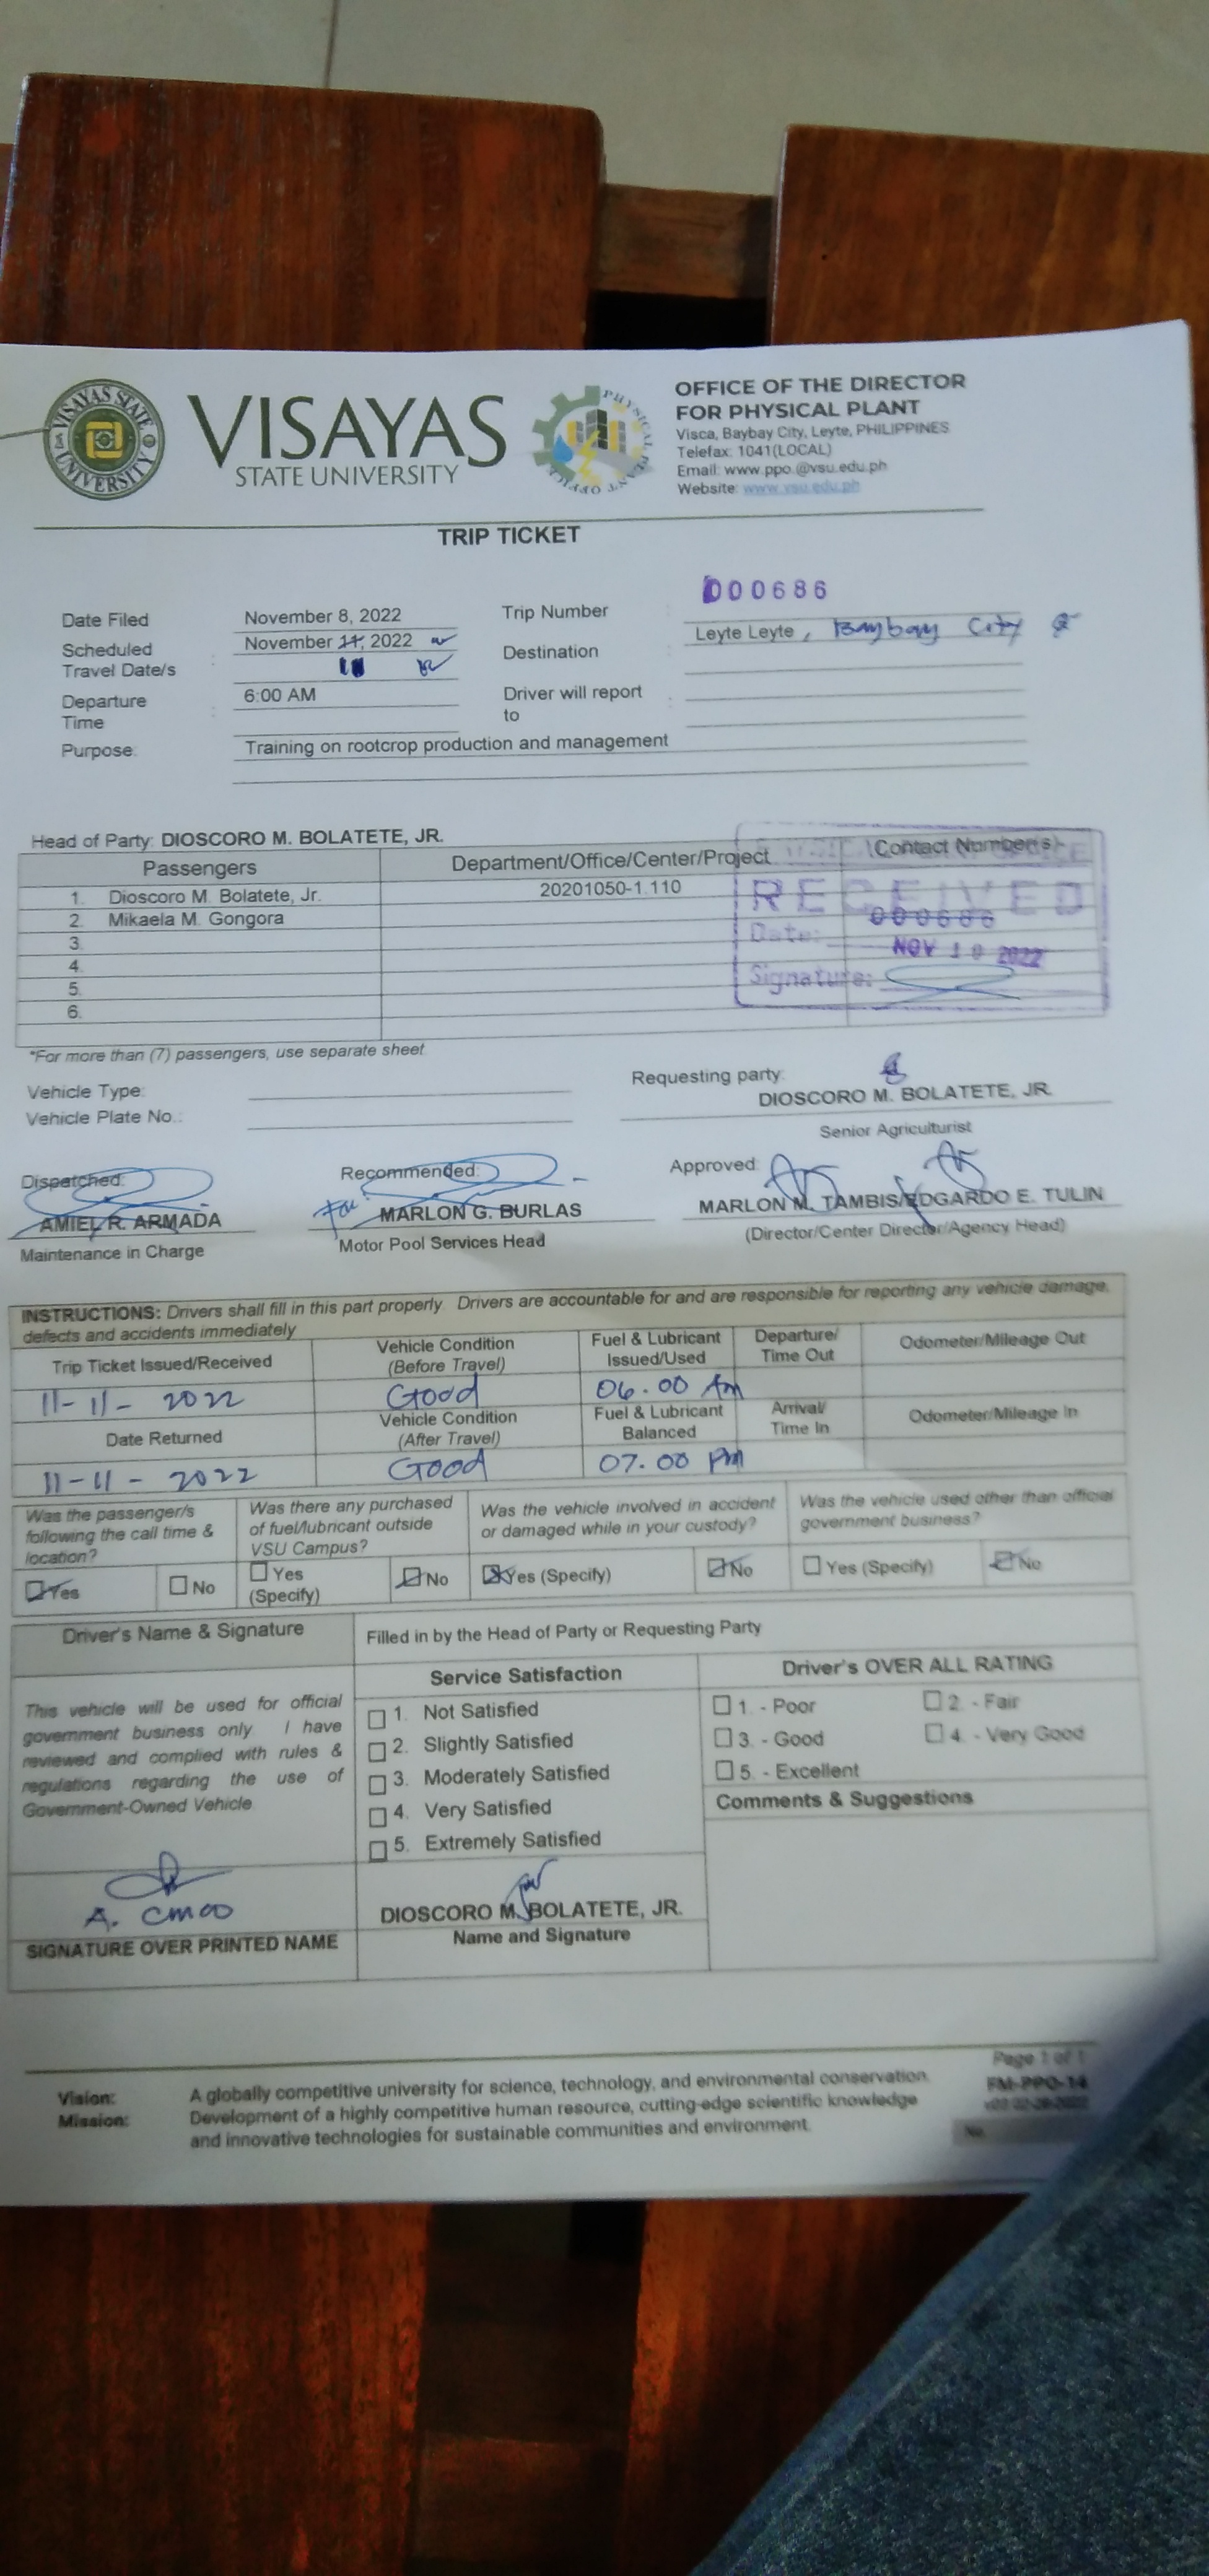 VISAYAS STATE UNIVERSITY
VISAYAS
STATE UNIVERSITY
PHYSICAL PLANT OFFICE
OFFICE OF THE DIRECTOR
FOR PHYSICAL PLANT
Visca, Baybay City, Leyte, PHILIPPINES
Telefax: 1041(LOCAL)
Email: www.ppo.@vsu.edu.ph
Website: www.vsu.edu.ph
TRIP TICKET
Date Filed November 8, 2022 Trip Number 000686
Scheduled Travel Date/s : November , 2022 11 Destination : Leyte Leyte, Baybay City
Departure Time : 6:00 AM Driver will report to :
Purpose: Training on rootcrop production and management
Head of Party: DIOSCORO M. BOLATETE, JR.
Passengers Department/Office/Center/Project Contact Number(s)
1. Dioscoro M. Bolatete, Jr. 20201050-1.110
2. Mikaela M. Gongora
3.
4.
5.
6.
RECEIVED
000686
Date: NOV 10 2022
Signature:
*For more than (7) passengers, use separate sheet
Vehicle Type:
Vehicle Plate No.:
Requesting party:
DIOSCORO M. BOLATETE, JR.
Senior Agriculturist
Dispatched: Recommended: Approved:
AMIEL R. ARMADA for: MARLON G. BURLAS MARLON M. TAMBIS/EDGARDO E. TULIN
Maintenance in Charge Motor Pool Services Head (Director/Center Director/Agency Head)
INSTRUCTIONS: Drivers shall fill in this part properly. Drivers are accountable for and are responsible for reporting any vehicle damage,
defects and accidents immediately
Trip Ticket Issued/Received Vehicle Condition (Before Travel) Fuel & Lubricant Issued/Used Departure/ Time Out Odometer/Mileage Out
11-11-2022 Good 06.00 Am
Date Returned Vehicle Condition (After Travel) Fuel & Lubricant Balanced Arrival/ Time In Odometer/Mileage In
11-11-2022 Good 07.00 Pm
Was the passenger/s following the call time & location? Was there any purchased of fuel/lubricant outside VSU Campus? Was the vehicle involved in accident or damaged while in your custody? Was the vehicle used other than official government business?
Yes No Yes (Specify) No Yes (Specify) No Yes (Specify) No
Driver's Name & Signature Filled in by the Head of Party or Requesting Party
Service Satisfaction Driver's OVER ALL RATING
This vehicle will be used for official
government business only. I have
reviewed and complied with rules &
regulations regarding the use of
Government-Owned Vehicle
1. Not Satisfied
2. Slightly Satisfied
3. Moderately Satisfied
4. Very Satisfied
5. Extremely Satisfied
1. - Poor 2. - Fair
3. - Good 4. - Very Good
5. - Excellent
Comments & Suggestions
A.
SIGNATURE OVER PRINTED NAME
DIOSCORO M. BOLATETE, JR.
Name and Signature
Vision: A globally competitive university for science, technology, and environmental conservation.
Mission: Development of a highly competitive human resource, cutting-edge scientific knowledge
and innovative technologies for sustainable communities and environment.
Page 1 of 1
FM-PPO-14
No.